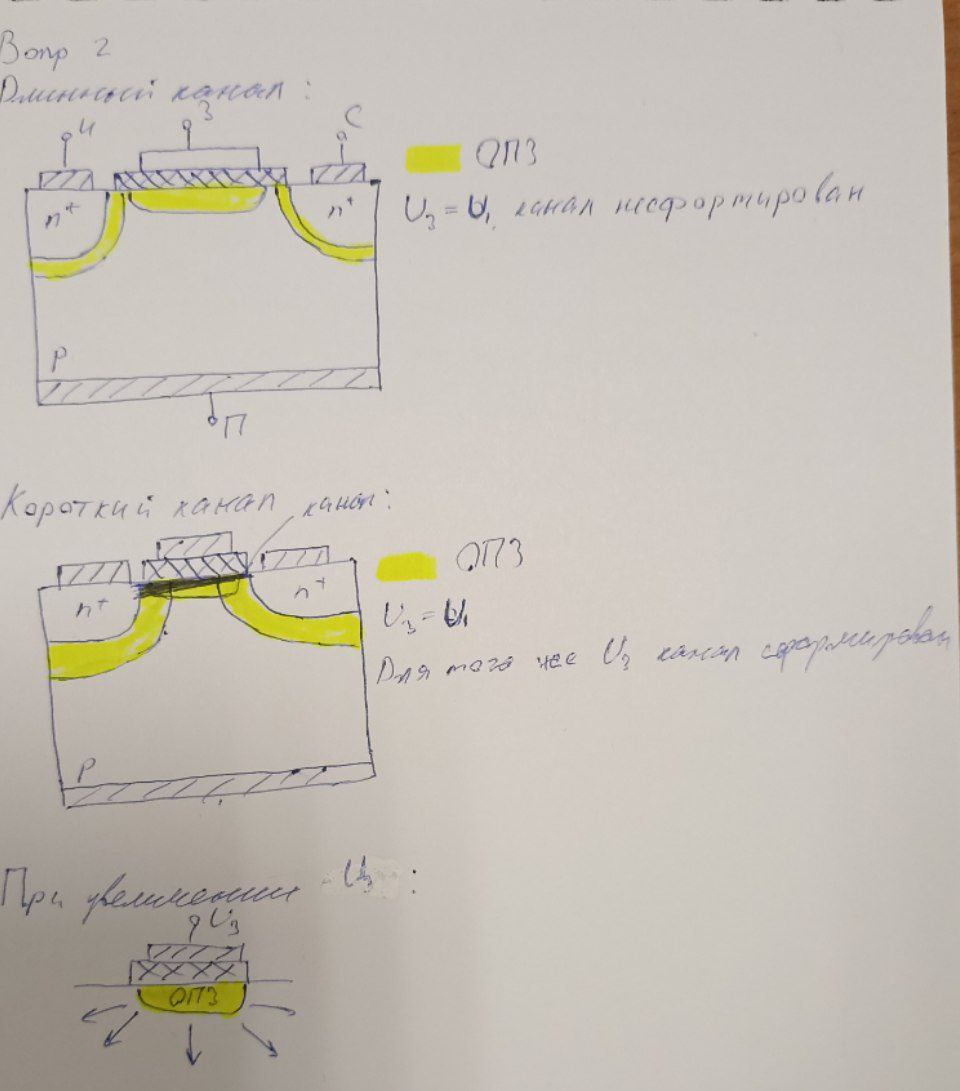 Вопр 2
Длинный канал:
И З С
ОПЗ
n⁺ n⁺
U₃ = U₁, канал несфортирован
P
П
Короткий канал канал:
ОПЗ
n⁺ n⁺
U₃ = U₁
Для того же U₃ канал сформирован
P
При увеличении U₃:
U₃
ОПЗ